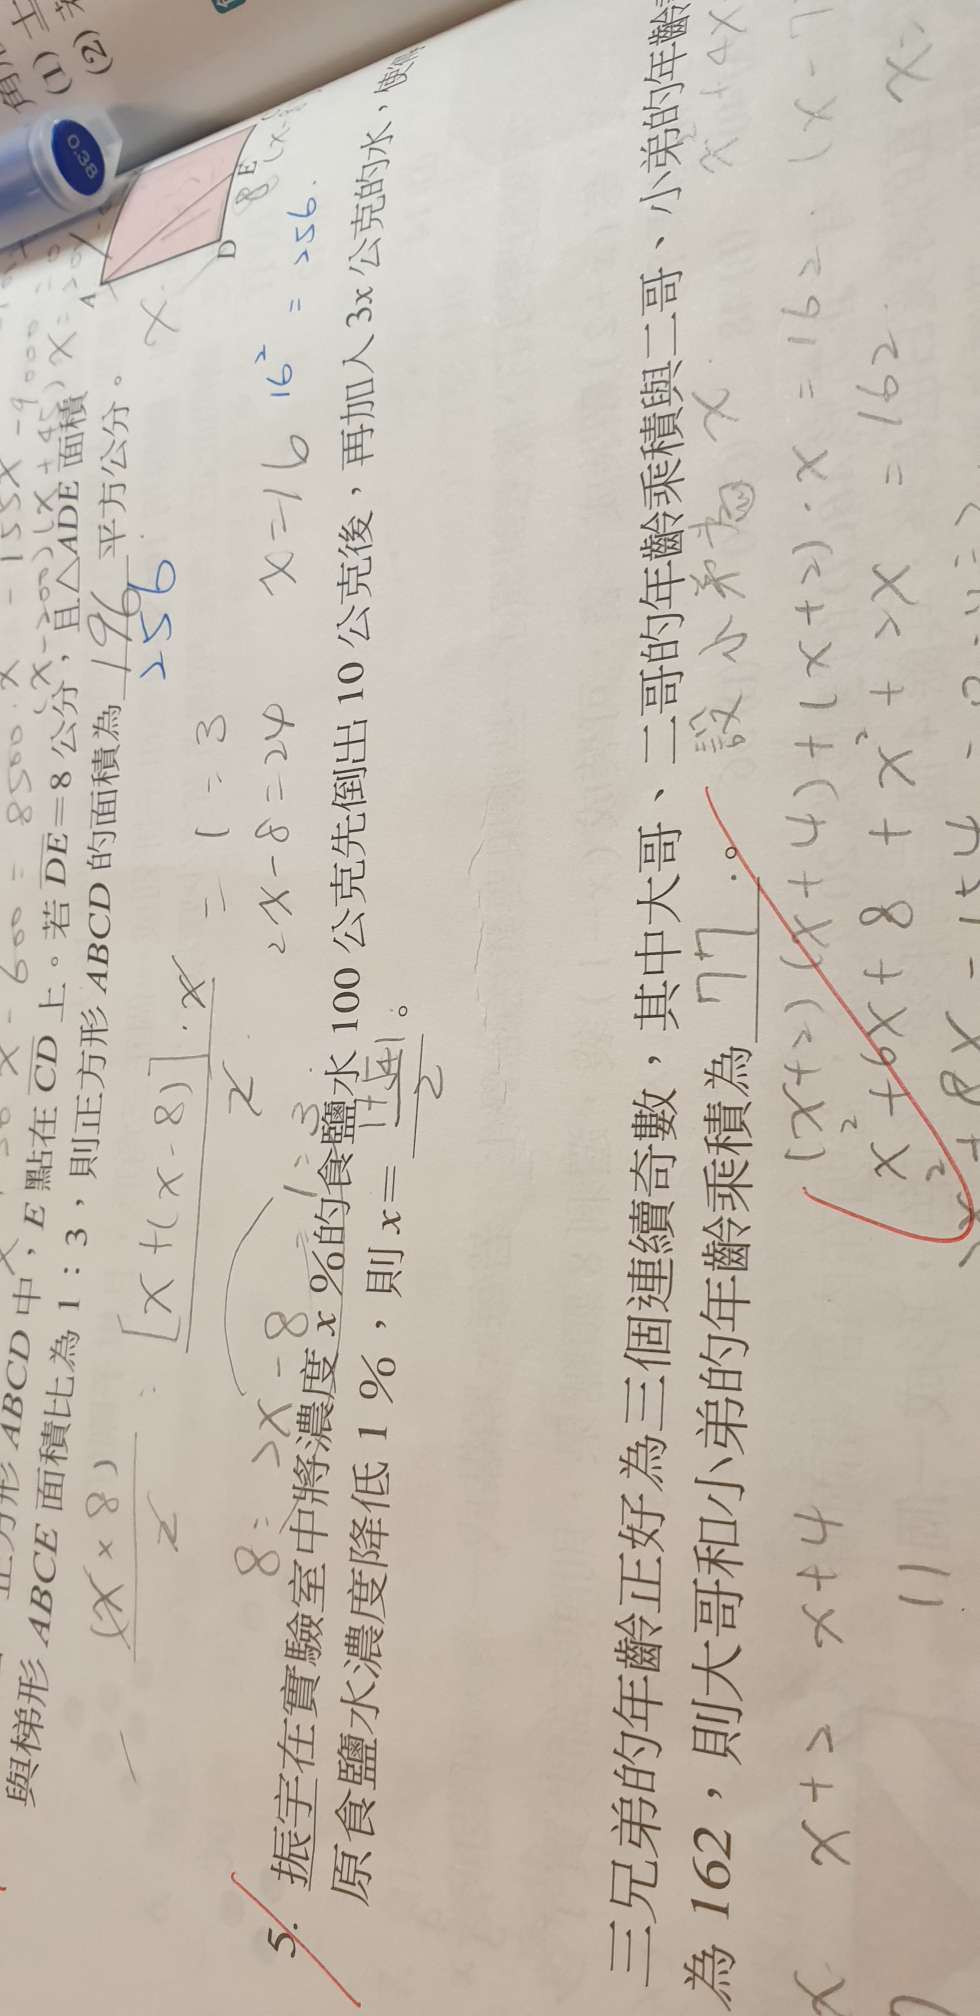 (1)
(2)
0.38
A
D
E
8
正方形 ABCD 中，E 點在 CD 上。若 DE=8 公分，且△ADE 面積
與梯形 ABCE 面積比為 1：3，則正方形 ABCD 的面積為 196 平方公分。
256
[x+(x-8)]·x
2
= 1:3
8:2x-8=1:3
2x-8=24
x=16
16²=256.
5. 振宇在實驗室中將濃度 x %的食鹽水 100 公克先倒出 10 公克後，再加入 3x 公克的水，使得
原食鹽水濃度降低 1 %，則 x=。
2
三兄弟的年齡正好為三個連續奇數，其中大哥、二哥的年齡乘積與二哥、小弟的年齡
為 162，則大哥和小弟的年齡乘積為 77 。
設小弟為 x
x x+2 x+4
(x+2)(x+4)+(x+2)·x=162.
x²+6x+8+x²+2x=162
11